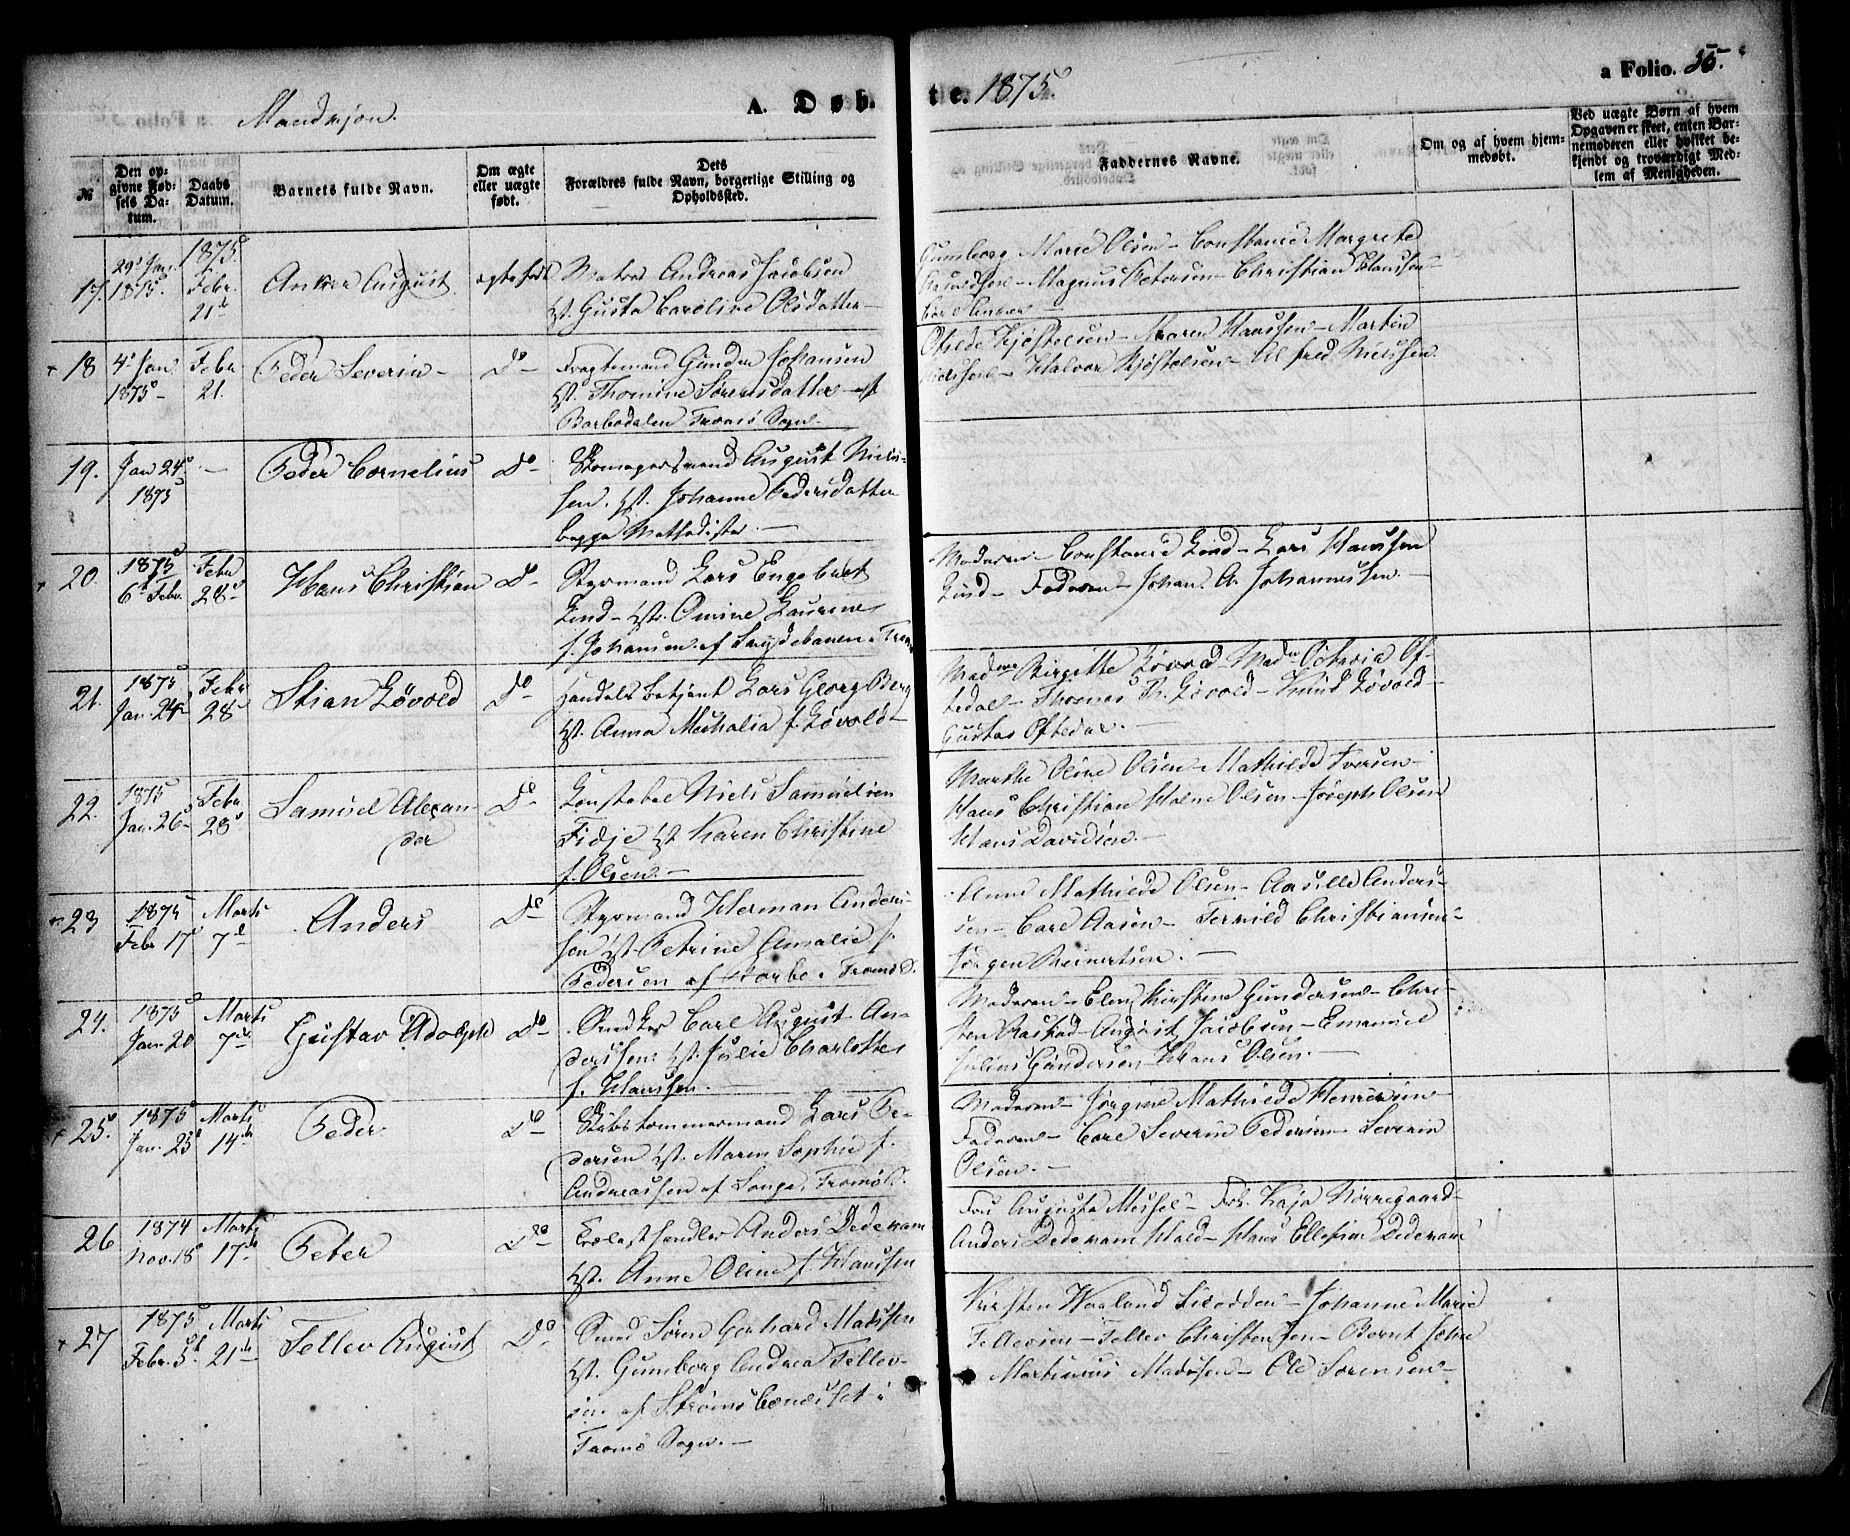 Mandkjøn.
A. Døb-
te. 1875.
a Folio. 35.
№
Den op-
givne Fød-
sels Da-
tum.
Daabs
Datum.
Barnets fulde Navn.
Om ægte
eller uægte
født.
Dets
Forældres fulde Navn, borgerlige Stilling og
Opholdssted.
Faddernes Navne.
Om og af hvem hjem-
medøbt.
Ved uægte Børn af hvem
Opgaven er skeet, enten Bar-
nemoderen eller hvilket be-
kjendt og troværdigt Med-
lem af Menigheden.
17.
29 Jan.
1875.
1875.
Febr.
21
August
ægtefødt
Andreas Jacobsen
Gusta Caroline Olsdatter
Gunborg Marie Olsen - Constance Margrethe
Magnus Petersen - Christian Hanssen
18
4 Jan
1875
Febr
21.
Peder Severin
Do
Fragtemand Gunder Johansen
Hst. Thomine Sørensdatter af
Barbodalen Tromø Sogn
Kjøstelsen - Maren Hanssen - Martin
Halvor Kjøstelsen - Alfred Nielsen
19.
Jan 24
1875
-
Peder Cornelius
Do
Skomagersvend August Niels-
sen. Hst. Johanne Pedersdatter
begge Methodister.
20.
1875
6 Febr.
Febr
28
Hans Christian
Do
Styrmand Lars Engebret
Lind - Hst. Omine Laurine
f. Johansen af
Moderen - Constance Lind - Lars Hanssen
Lind - Faderen - Johan A. Johannessen.
21.
1875
Jan. 24
Febr
28
Stian Løvold
Do
Handelsbetjent Lars Georg Berg
Hst. Anna Mathalia f. Løvold
Madme Birgitte Løvold - Madm Octavia Of-
tedal - Thomas Løvold - Knud Løvold -
Gustav Oftedal.
22.
1875
Jan. 26
Febr.
28
Samuel Alexan-
der
Do
Konstabel Niels Samuelsen
Fidje Hst Karen Christine
f. Olsen.
Marthe Oline Olsen - Mathilde Iversen
Hans Christian Holm Olsen - Joseph Olsen
Hans Davidsen.
23
1875
Febr 17
Marts
7
Anders
Do
Styrmand Herman Anders-
sen Hst. Petrine Amalie f.
Pedersen af
Anne Mathilde Olsen - Aasille Anders-
sen - Carl Aasen - Terkild Christiansen
Jørgen Reinertsen.
24.
1875
Jan. 20
Marts
7
Gustav Adolph
Do
Snedker Carl August An-
derssen. Hst. Julie Charlotte
f. Hanssen.
Moderen - Elen Kirstine Gundersen - Chri-
sten August Jacobsen - Emanuel
Julius Gundersen - Hans Olsen.
25.
1875
Jan. 25
Marts
14
Peder
Do
Skibstømmermand Lars Pe-
dersen Hst. Maren Sophie f.
Andreassen af Songe, Tromø S.
Moderen - Jørgine Mathilde Henriksen
Faderen - Carl Severin Pedersen - Severin
Olsen.
26
1874
Nov. 18
Marts
17
Peter
Do
Trælasthandler Anders Dedekam
Hst. Anne Oline f. Hanssen
Fru Augusta Mechel - Frk. Kaja Nørregaard
Anders Dedekam Hald - Hans Ellefsen Dedekam
27
1875
Febr. 5
Marts
21
Tellev August
Do.
Smed Søren Gerhard Madssen
Hst. Gunborg Andrea Tellev-
sen af Strømsbuneset i
Tromø Sogn.
Kirsten - Johanne Marie
Tellevsen - Tellev Christensen - Bernt John
Martinius Madssen - Ole Sørensen